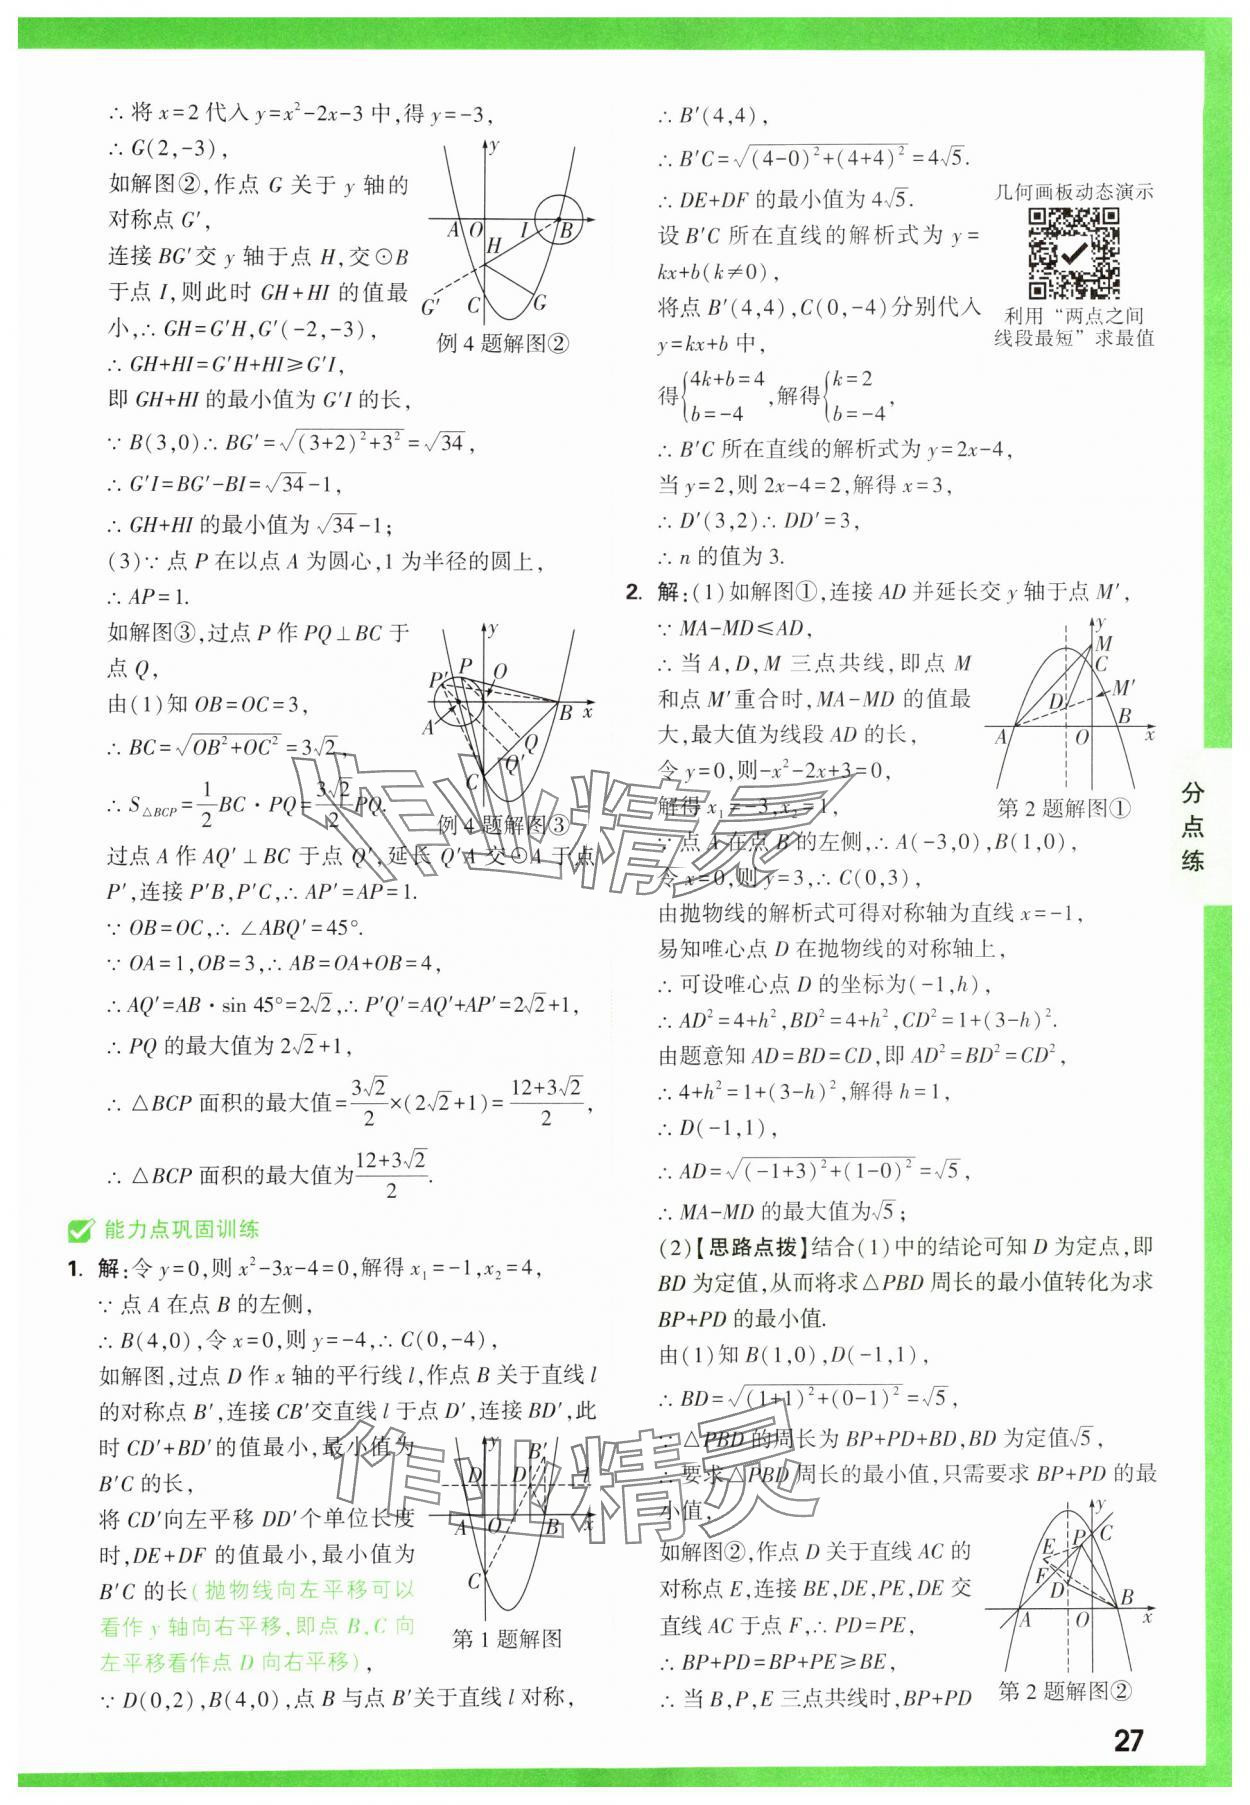 ∴ 将 x=2 代入 y=x²-2x-3 中,得 y=-3,
∴ G(2,-3),
如解图②,作点 G 关于 y 轴的
对称点 G′,
连接 BG′交 y 轴于点 H,交⊙B
于点 I,则此时 GH+HI 的值最
小,∴ GH=G′H,G′(-2,-3),
∴ GH+HI=G′H+HI≥G′I,
即 GH+HI 的最小值为 G′I 的长,
∵ B(3,0)∴ BG′=√((3+2)²+3²)=√34,
∴ G′I=BG′-BI=√34-1,
∴ GH+HI 的最小值为 √34-1;
y
A O I B
H
G′ C G
例 4 题解图②
(3)∵ 点 P 在以点 A 为圆心,1 为半径的圆上,
∴ AP=1.
如解图③,过点 P 作 PQ⊥BC 于
点 Q,
由(1)知 OB=OC=3,
∴ BC=√(OB²+OC²)=3√2,
∴ S△BCP=1/2 BC·PQ=3√2/2 PQ.
y
P′ P O
A B x
Q
C Q′
例 4 题解图③
过点 A 作 AQ′⊥BC 于点 Q′,延长 Q′A 交⊙A 于点
P′,连接 P′B,P′C,∴ AP′=AP=1.
∵ OB=OC,∴ ∠ABQ′=45°.
∵ OA=1,OB=3,∴ AB=OA+OB=4,
∴ AQ′=AB·sin 45°=2√2,∴ P′Q′=AQ′+AP′=2√2+1,
∴ PQ 的最大值为 2√2+1,
∴ △BCP 面积的最大值=3√2/2×(2√2+1)=(12+3√2)/2,
∴ △BCP 面积的最大值为(12+3√2)/2.
能力点巩固训练
1. 解:令 y=0,则 x²-3x-4=0,解得 x₁=-1,x₂=4,
∵ 点 A 在点 B 的左侧,
∴ B(4,0),令 x=0,则 y=-4,∴ C(0,-4),
如解图,过点 D 作 x 轴的平行线 l,作点 B 关于直线 l
的对称点 B′,连接 CB′交直线 l 于点 D′,连接 BD′,此
时 CD′+BD′的值最小,最小值为
B′C 的长,
将 CD′向左平移 DD′个单位长度
时,DE+DF 的值最小,最小值为
B′C 的长(抛物线向左平移可以
看作 y 轴向右平移,即点 B,C 向
左平移看作点 D 向右平移),
y B′
D D′ l
A O B x
C
第 1 题解图
∵ D(0,2),B(4,0),点 B 与点 B′关于直线 l 对称,
∴ B′(4,4),
∴ B′C=√((4-0)²+(4+4)²)=4√5.
∴ DE+DF 的最小值为 4√5.
设 B′C 所在直线的解析式为 y=
kx+b(k≠0),
将点 B′(4,4),C(0,-4)分别代入
y=kx+b 中,
几何画板动态演示
利用“两点之间
线段最短”求最值
得{4k+b=4
b=-4 ,解得{k=2
b=-4 ,
∴ B′C 所在直线的解析式为 y=2x-4,
当 y=2,则 2x-4=2,解得 x=3,
∴ D′(3,2)∴ DD′=3,
∴ n 的值为 3.
2. 解:(1)如解图①,连接 AD 并延长交 y 轴于点 M′,
∵ MA-MD≤AD,
∴ 当 A,D,M 三点共线,即点 M
和点 M′重合时,MA-MD 的值最
大,最大值为线段 AD 的长,
令 y=0,则-x²-2x+3=0,
解得 x₁=-3,x₂=1,
y
M
C
M′
D
A O B x
第 2 题解图①
∵ 点 A 在点 B 的左侧,∴ A(-3,0),B(1,0),
令 x=0,则 y=3,∴ C(0,3),
由抛物线的解析式可得对称轴为直线 x=-1,
易知唯心点 D 在抛物线的对称轴上,
∴ 可设唯心点 D 的坐标为(-1,h),
∴ AD²=4+h²,BD²=4+h²,CD²=1+(3-h)².
由题意知 AD=BD=CD,即 AD²=BD²=CD²,
∴ 4+h²=1+(3-h)²,解得 h=1,
∴ D(-1,1),
∴ AD=√((-1+3)²+(1-0)²)=√5,
∴ MA-MD 的最大值为√5;
(2)【思路点拨】结合(1)中的结论可知 D 为定点,即
BD 为定值,从而将求△PBD 周长的最小值转化为求
BP+PD 的最小值.
由(1)知 B(1,0),D(-1,1),
∴ BD=√((1+1)²+(0-1)²)=√5,
∵ △PBD 的周长为 BP+PD+BD,BD 为定值√5,
∴ 要求△PBD 周长的最小值,只需要求 BP+PD 的最
小值,
如解图②,作点 D 关于直线 AC 的
对称点 E,连接 BE,DE,PE,DE 交
直线 AC 于点 F,∴ PD=PE,
∴ BP+PD=BP+PE≥BE,
∴ 当 B,P,E 三点共线时,BP+PD
y
P C
E
F
D
A O B x
第 2 题解图②
分点练
27
作业精灵
作业精灵